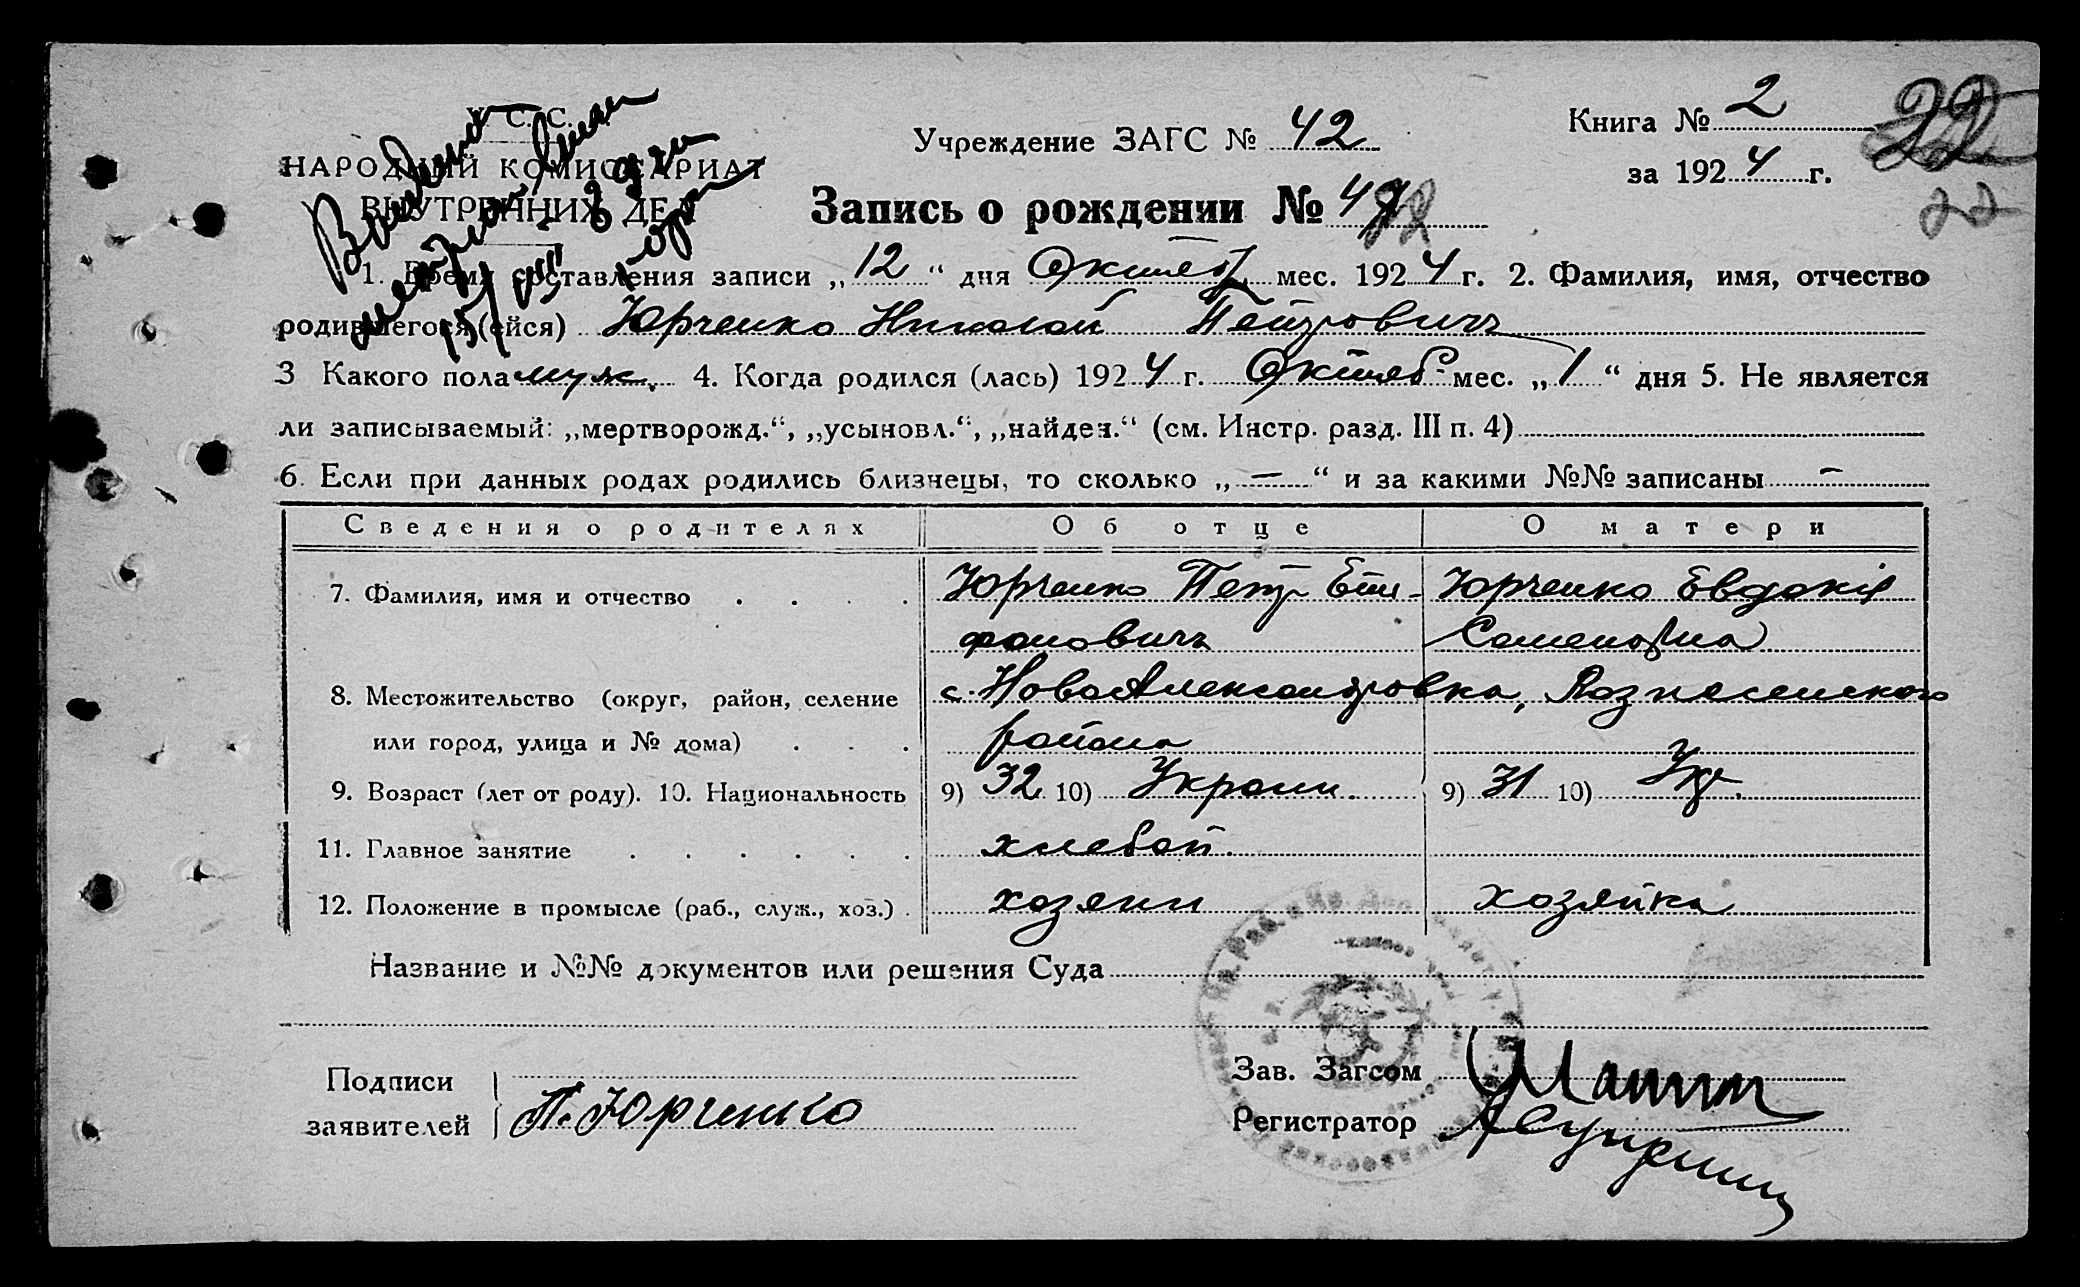 У. С. С. Р.
НАРОДНЫЙ КОМИССАРИАТ
ВНУТРЕННИХ ДЕЛ
Учреждение ЗАГС № 42
Книга № 2
за 1924 г.
22
22
Запись о рождении № 22
1. Время составления записи „12“ дня Октяб. мес. 1924 г. 2. Фамилия, имя, отчество
родившегося (ейся) Юрченко Николай Петровичъ
3 Какого пола муж. 4. Когда родился (лась) 1924 г. Октяб. мес. „1“ дня 5. Не является
ли записываемый: „мертворожд.“, „усыновл.“, „найден.“ (см. Инстр. разд. III п. 4)
6. Если при данных родах родились близнецы, то сколько „—“ и за какими №№ записаны —
Сведения о родителях Об отце О матери
7. Фамилия, имя и отчество Юрченко Петр Епи- Юрченко Евдокія
фановичъ Семеновна
8. Местожительство (округ, район, селение с. НовоАлександровка, Вознесенского
или город, улица и № дома) района
9. Возраст (лет от роду). 10. Национальность 9) 32 10) Украин. 9) 31 10) Укр.
11. Главное занятие хлебоп.
12. Положение в промысле (раб., служ., хоз.) хозяин хозяйка
Название и №№ документов или решения Суда
Подписи
заявителей П. Юрченко
Зав. Загсом
Регистратор